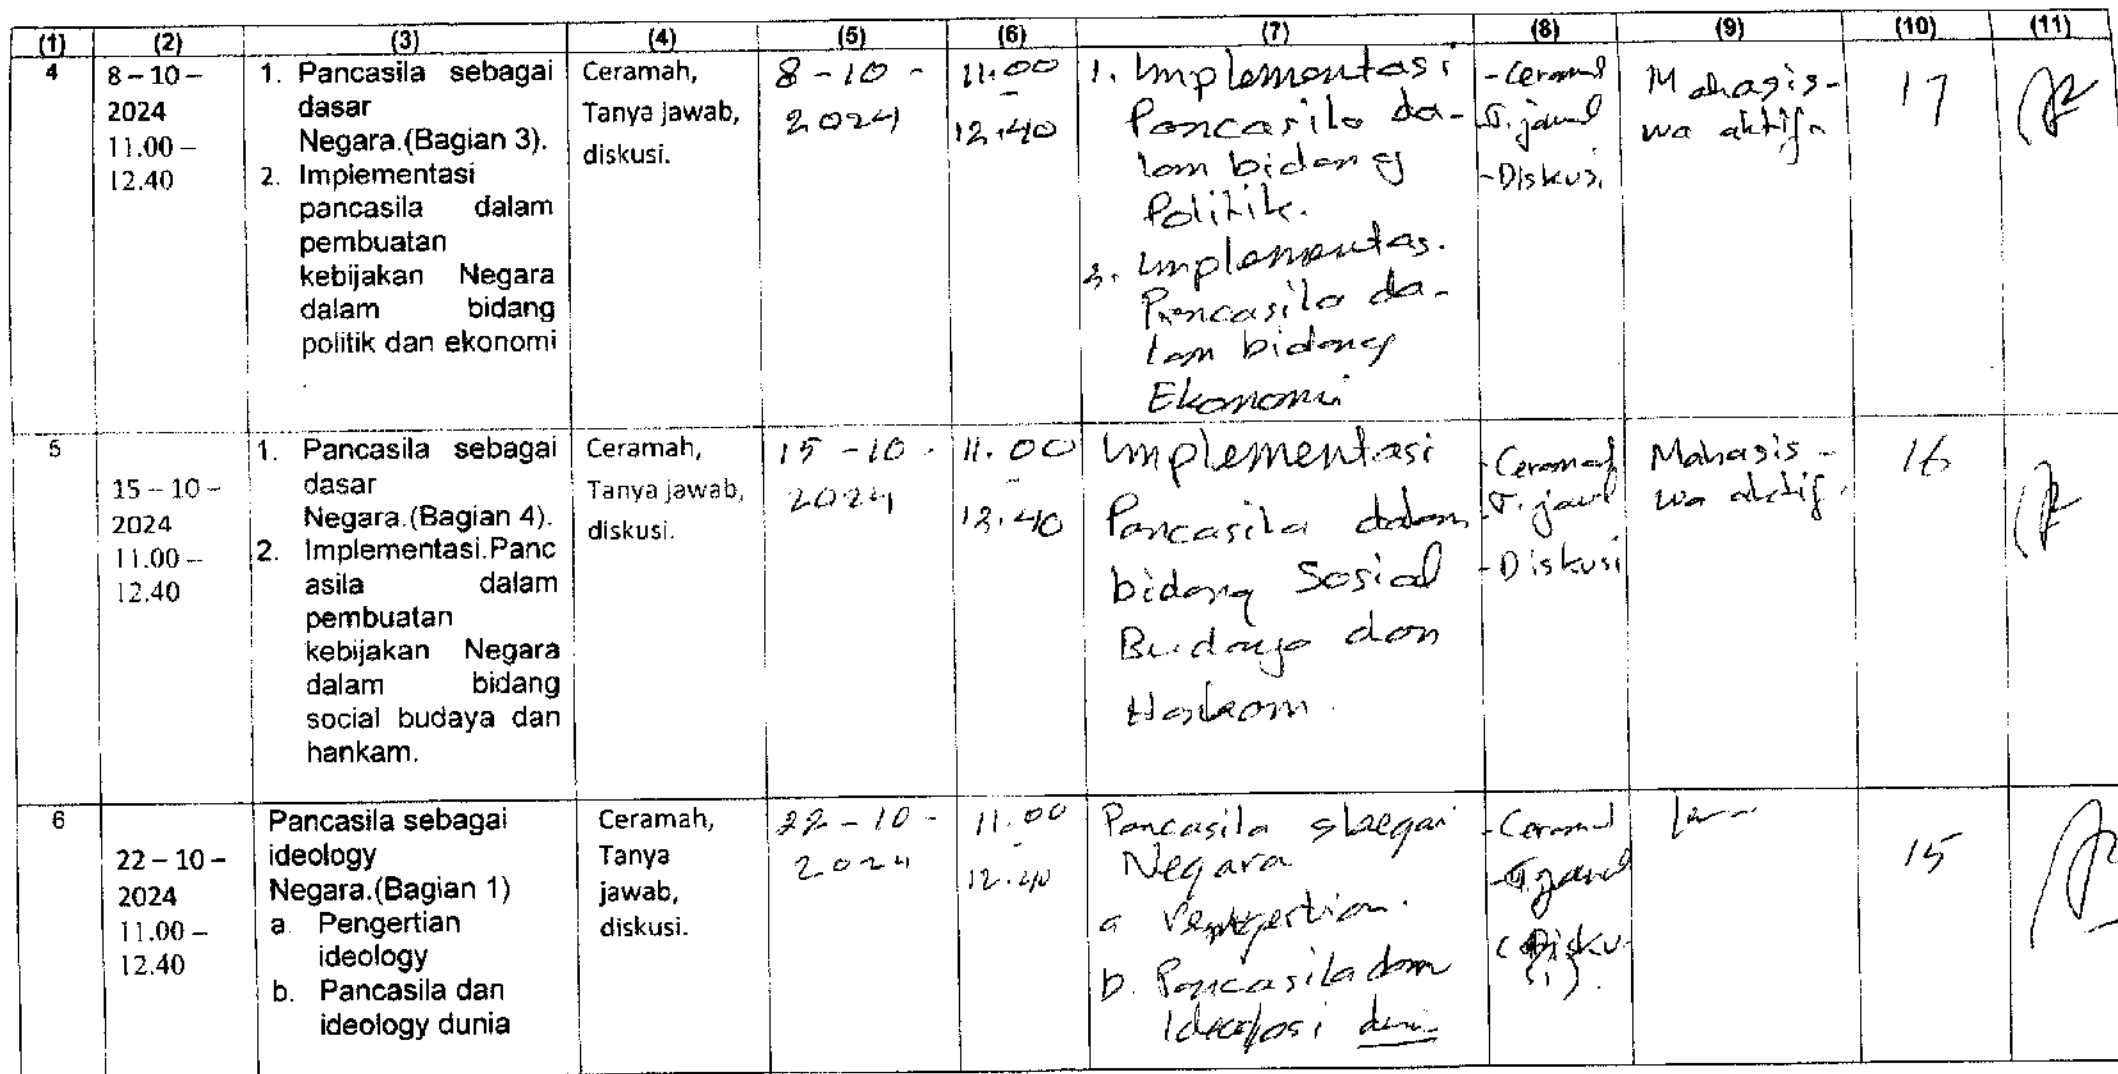 (1) (2) (3) (4) (5) (6) (7) (8) (9) (10) (11)
4
8 – 10 –
2024
11.00 –
12.40
1. Pancasila sebagai
dasar
Negara.(Bagian 3).
2. Implementasi
pancasila dalam
pembuatan
kebijakan Negara
dalam bidang
politik dan ekonomi
.
Ceramah,
Tanya jawab,
diskusi.
8 - 10 -
2024
11.00
-
12.40
1. Implementasi
Pancasila da-
lam bidang
Politik.
2. Implementas.
Pancasila da-
lam bidang
Ekonomi
- Ceramah
- T. jawab
- Diskusi
Mahasis-
wa aktif.
17
5
15 – 10 –
2024
11.00 –
12.40
1. Pancasila sebagai
dasar
Negara.(Bagian 4).
2. Implementasi.Panc
asila dalam
pembuatan
kebijakan Negara
dalam bidang
social budaya dan
hankam.
Ceramah,
Tanya jawab,
diskusi.
15 - 10 -
2024
11.00
-
12.40
Implementasi
Pancasila dalam
bidang Sosial
Budaya dan
Hankam.
- Ceramah
- T. jawab
- Diskusi
Mahasis-
wa aktif.
16
6
22 – 10 –
2024
11.00 –
12.40
Pancasila sebagai
ideology
Negara.(Bagian 1)
a. Pengertian
ideology
b. Pancasila dan
ideology dunia
Ceramah,
Tanya
jawab,
diskusi.
22 - 10 -
2024
11.00
-
12.40
Pancasila sbaegai
Negara
a Pengertian.
b. Pancasila dan
Ideologi
- Ceramah
- T. jawab
(Disku-
si).
15